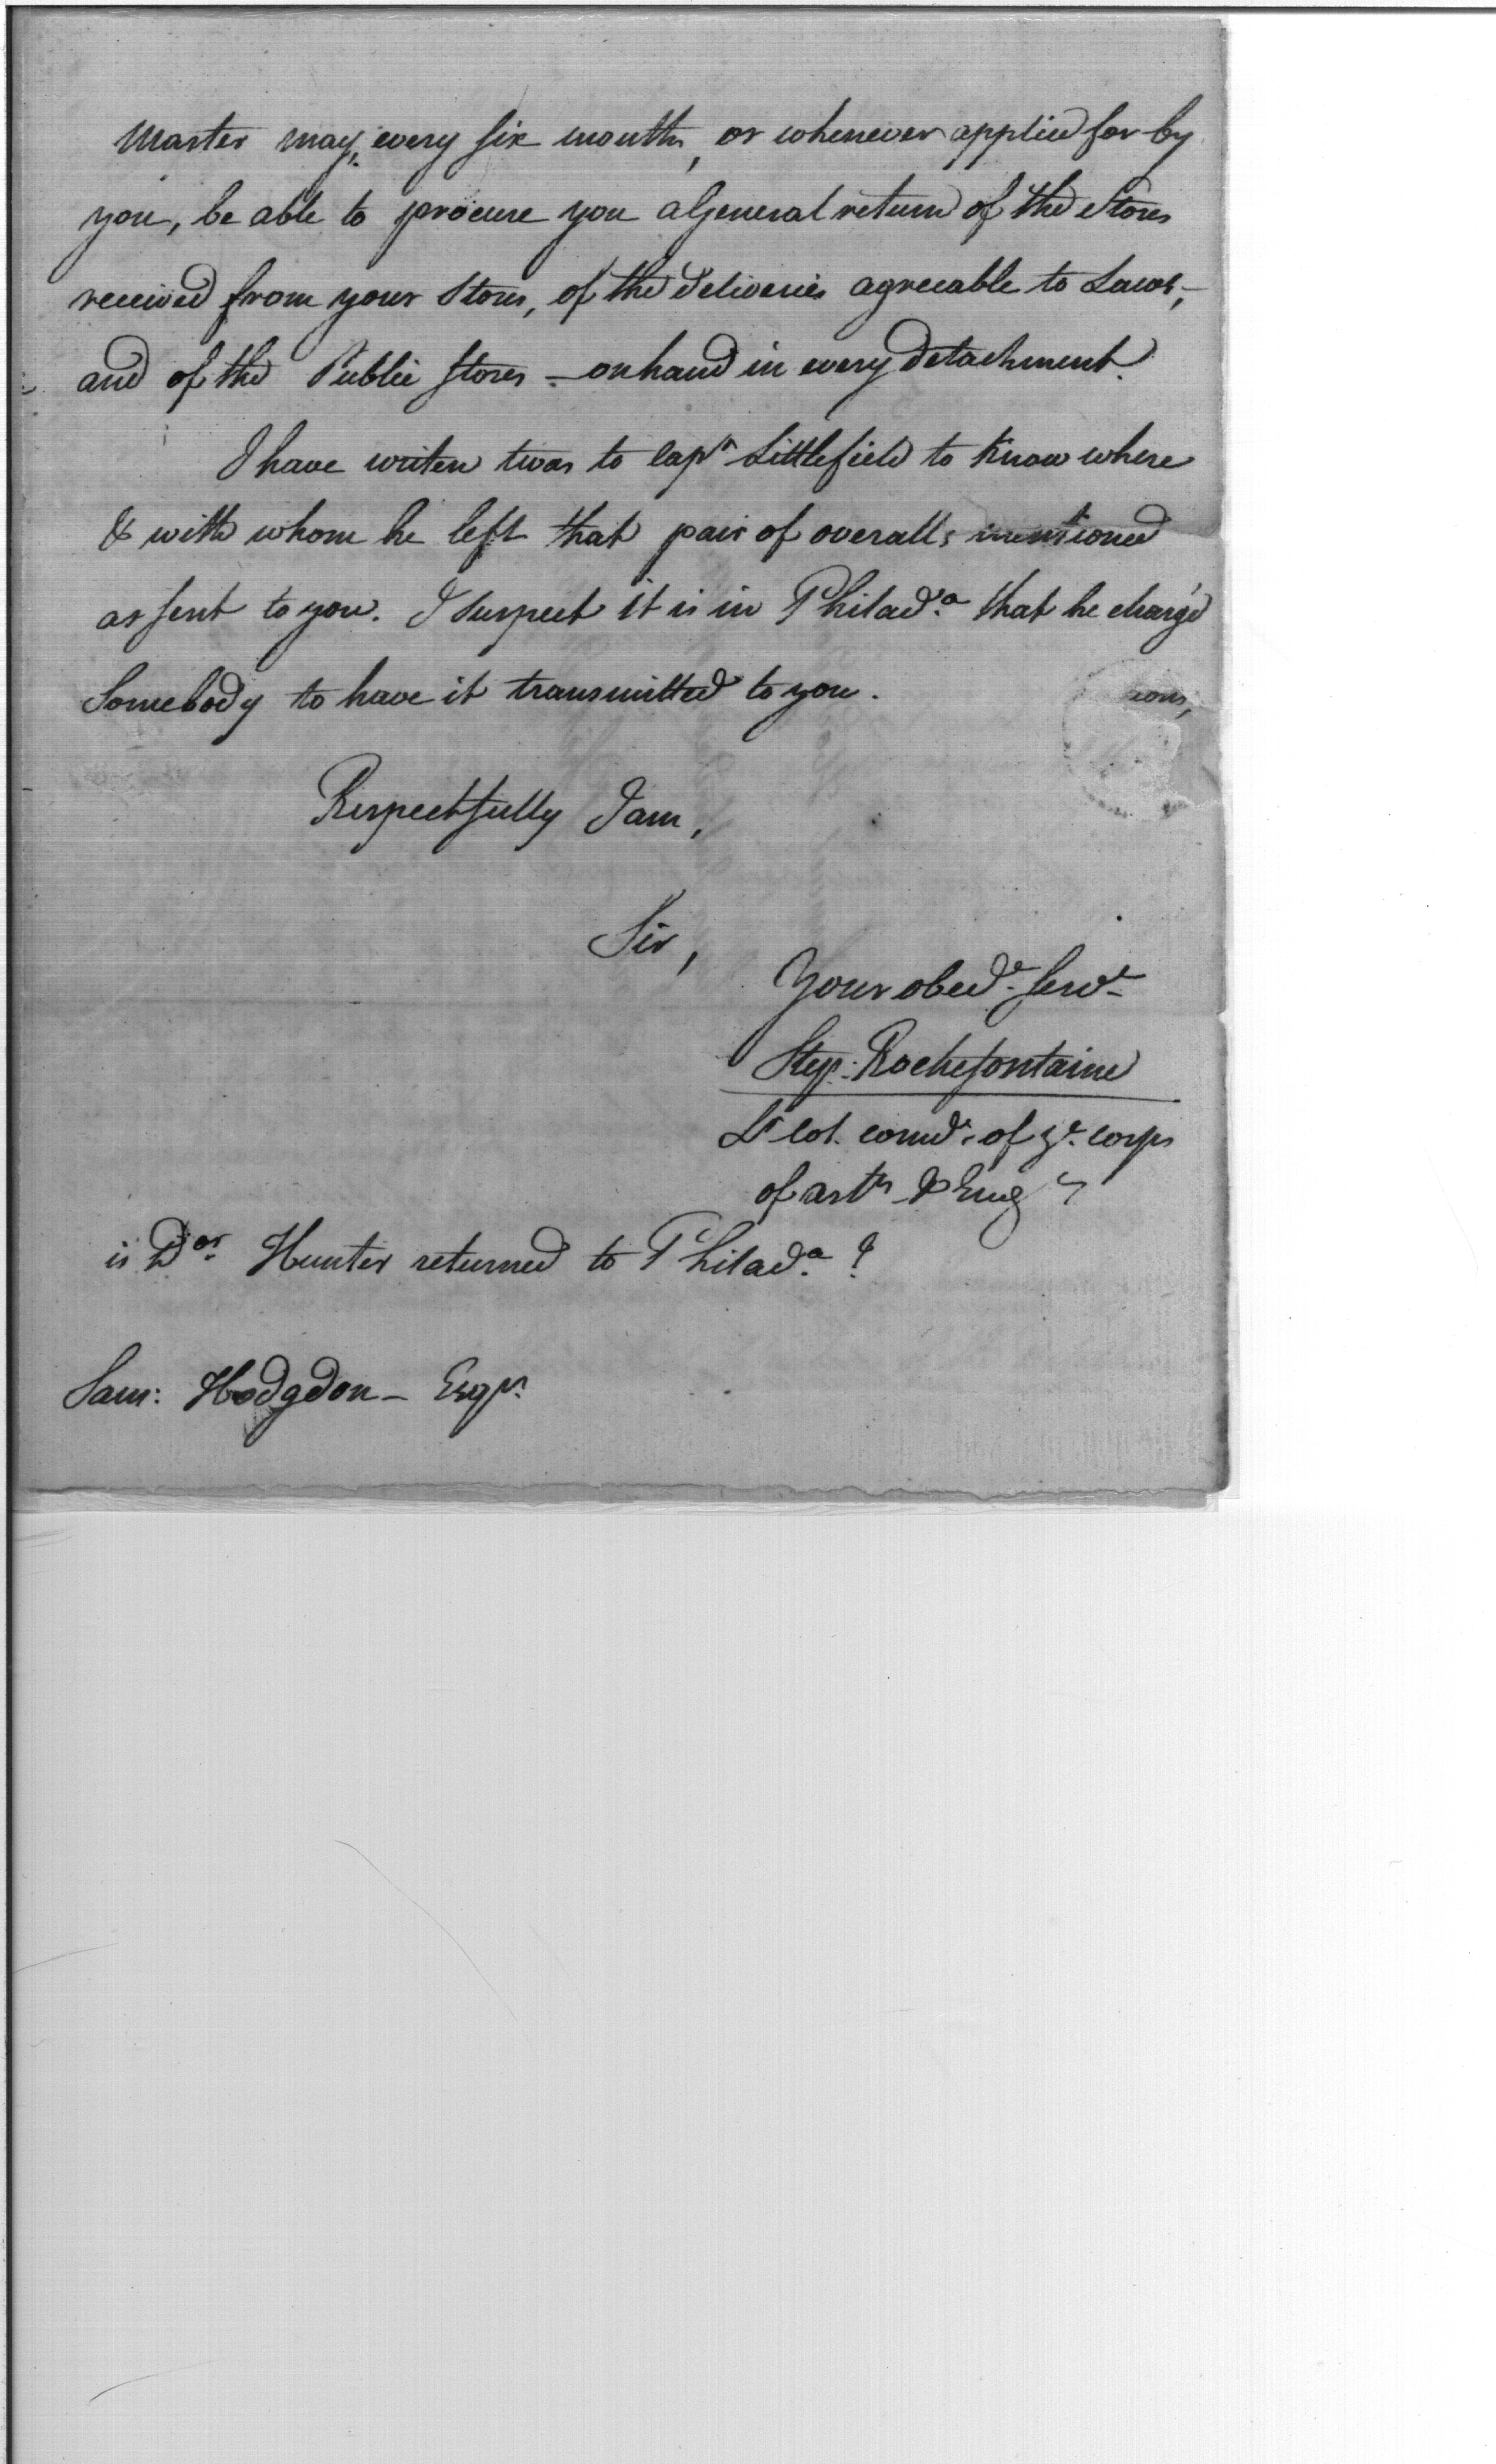 Master may, every six months, or whenever applied for by
you, be able to procure you a General return of the Stores
received from your Stores, of the deliveries agreeable to Laws,-
and of the Public Stores - on hand in every detachment.
I have writen to Capn Littlefield to Know where
& with whom he left that pair of overalls mentioned
as sent to you. I suspect it is in Philada. that he charg'd
Somebody to have it transmitted to you.
ions,
Respectfully I am,
Sir,
Your obedt. Servt.
Step: Rochefontaine
Lt Col. comdt. of ye. corps
of arts & Eng
is Dor. Hunter returned to Philada. ?
Sam: Hodgdon - Esqr.